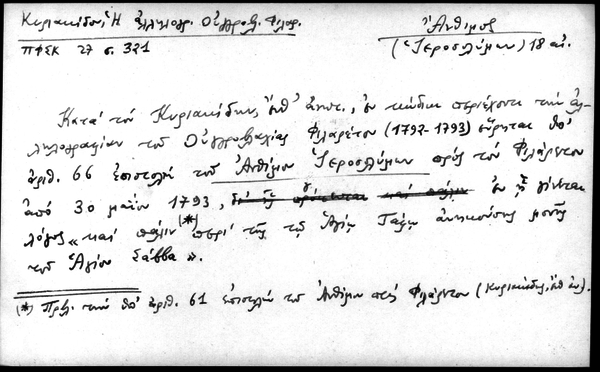 Κυριακίδου, Ἡ ἀλληλογρ. Οὑγγροβλ. Φιλαρ.
ΠΦΣΚ 27 σ. 321
Ἄνθιμος
(Ἱεροσολύμων) 18 αἰ.
Κατὰ τὸν Κυριακίδην, ἔνθ' ἀνωτ., ἐν κώδικι περιέχοντι τὴν ἀλ-
ληλογραφίαν τοῦ Οὑγγροβλαχίας Φιλαρέτου (1792-1793) εὕρηται ὑπ'
ἀριθ. 66 ἐπιστολὴ τοῦ Ἀνθίμου Ἱεροσολύμων πρὸς τὸν Φιλάρετον
ἀπὸ 30 μαΐου 1793, ἐν ᾗ γίνεται
λόγος «καὶ πάλιν (*) περὶ τῆς τῷ Ἁγίῳ Τάφῳ ἀνηκούσης μονῆς
τοῦ Ἁγίου Σάββα».
(*) Πρβλ. τὴν ὑπ' ἀριθ. 61 ἐπιστολὴ τοῦ Ἀνθίμου πρὸς Φιλάρετον (Κυριακίδης, ἔνθ ἀν).